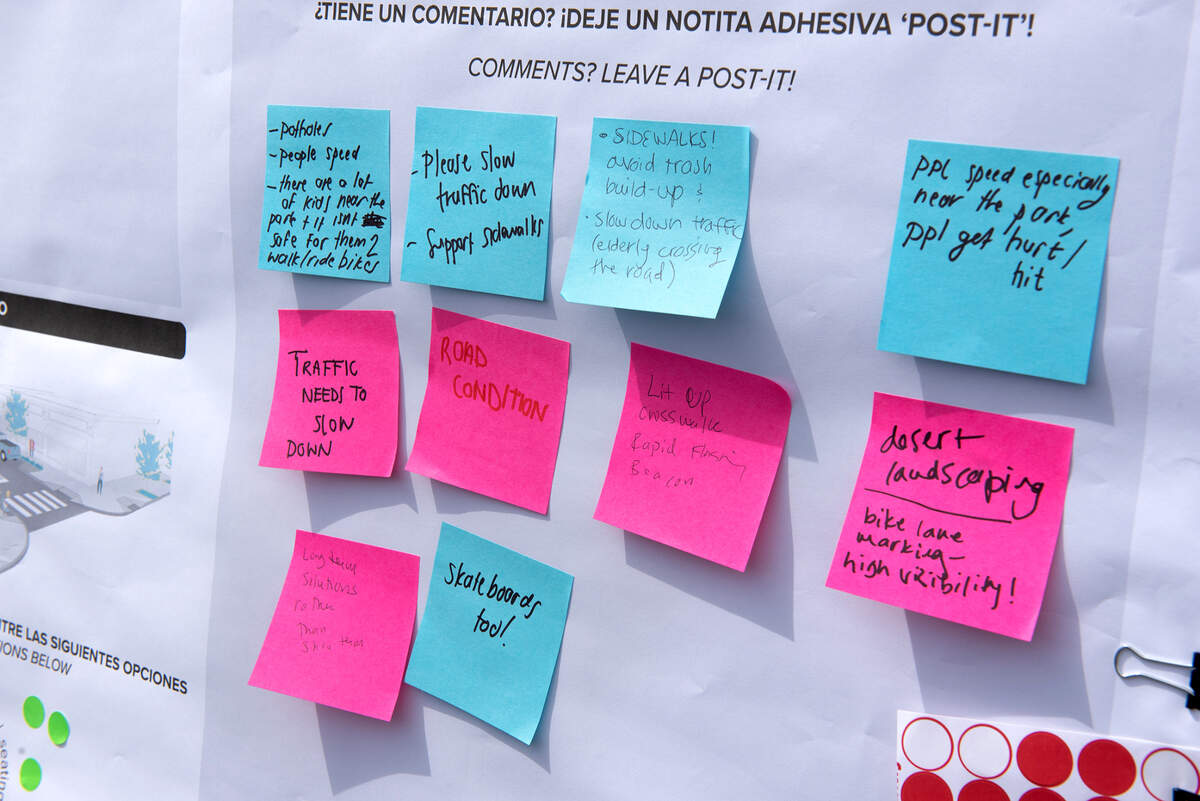 ¿TIENE UN COMENTARIO? ¡DEJE UN NOTITA ADHESIVA 'POST-IT'!
COMMENTS? LEAVE A POST-IT!
- potholes
- people speed
- there are a lot
of kids near the
park + it isnt
safe for them 2
walk/ride bikes
- Please slow
traffic down
- Support sidewalks
• SIDEWALKS!
avoid trash
build-up &
• slow down traffic
(elderly crossing
the road)
ppl speed especially
near the park,
ppl get hurt/
hit
TRAFFIC
NEEDS TO
SLOW
DOWN
ROAD
CONDITION
Lit up
crosswalk
Rapid Flashing
Beacon
desert
landscaping
bike lane
marking-
high visibility!
Long term
solutions
rather
than
short term
skateboards
too!
O
NTRE LAS SIGUIENTES OPCIONES
IONS BELOW
seating